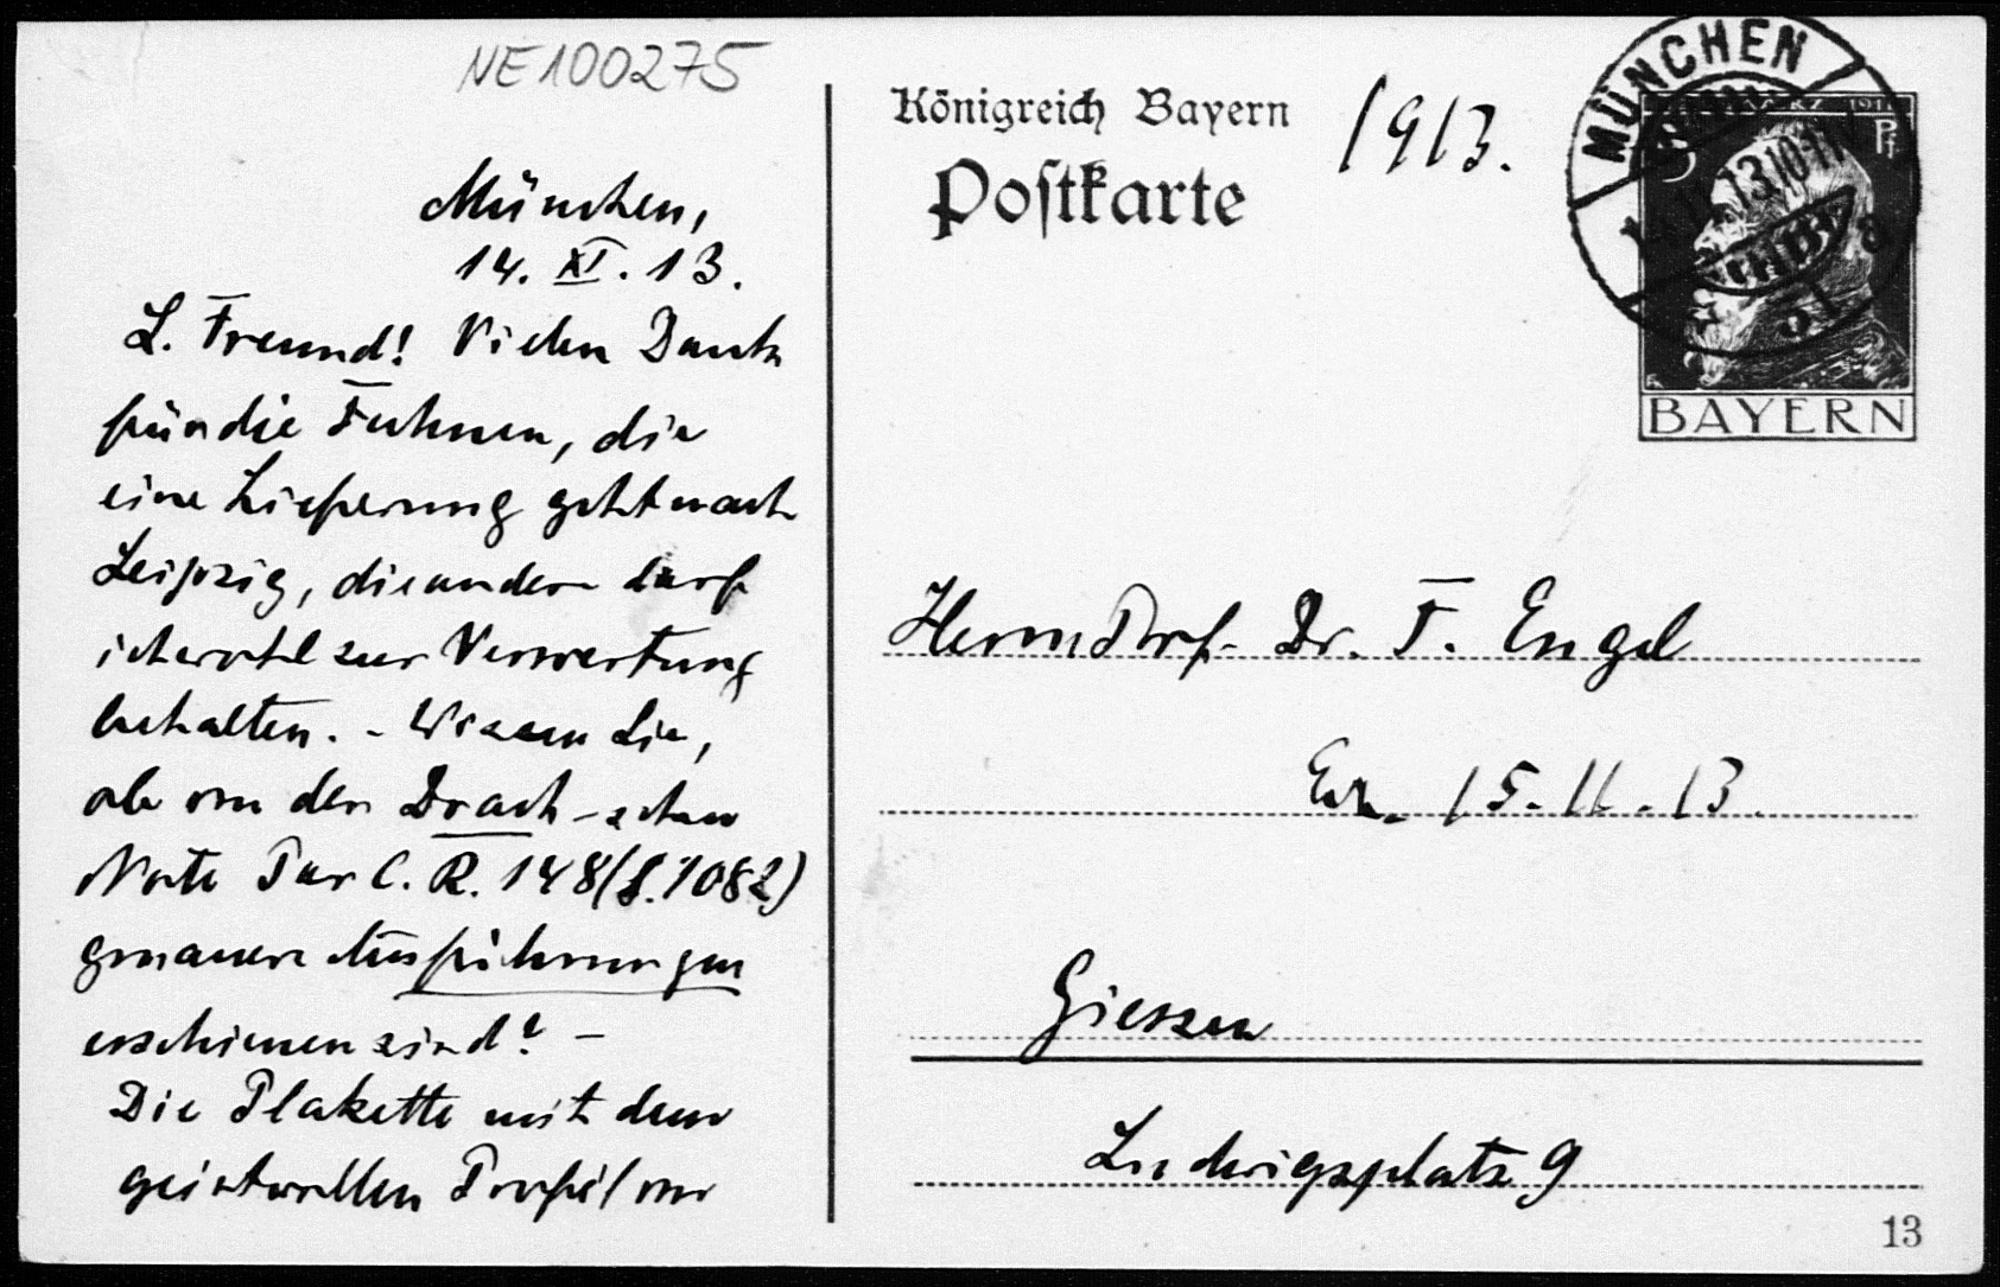 NE100275
München,
14. XI. 13.
L. Freund! Vielen Dank
für die Fahnen, die
eine Lieferung geht nach
Leipzig, die andere darf
ich wohl zur Verwertung
behalten. - Wissen Sie,
ob von der Drach-schen
Note Par C. R. 148 (S. 1082)
genauere Ausführungen
erschienen sind? -
Die Plakette mit dem
geistvollen Profil von
Königreich Bayern
Postkarte
1913.
MÜNCHEN
BAYERN
Herrn Prof. Dr. F. Engel
15.11.13.
Giessen
Ludwigsplatz 9
13